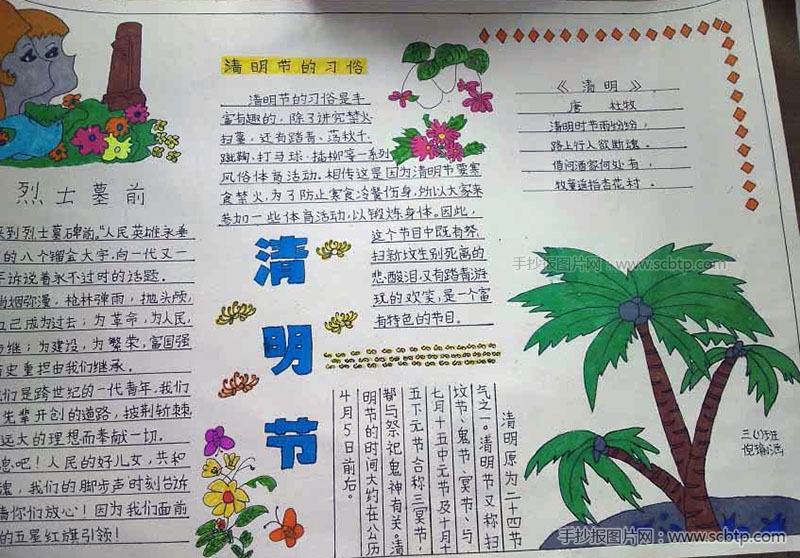 清明节的习俗
清明节的习俗是丰
富有趣的，除了讲究禁火
扫墓，还有踏青、荡秋千、
蹴鞠、打马球、插柳等一系列
风俗体育活动。相传这是因为清明节要寒
食禁火，为了防止寒食冷餐伤身，所以大家来
参加一些体育活动，以锻炼身体。因此，
这个节日中既有祭
扫新坟生别死离的
悲酸泪，又有踏青游
玩的欢笑，是一个富
有特色的节日。
《清明》
唐 杜牧
清明时节雨纷纷，
路上行人欲断魂。
借问酒家何处有，
牧童遥指杏花村。
烈士墓前
到烈士墓碑前。"人民英雄永垂
的八个镏金大字，向一代又一
诉说着永不过时的话题。
烟弥漫，枪林弹雨，抛头颅，
已成为过去；为革命，为人民，
继；为建设，为繁荣，富国强
史重担由我们继承。
们是跨世纪的一代青年，我们
先辈开创的道路，披荆斩棘
远大的理想而奉献一切。
息吧！人民的好儿女，共和
，我们的脚步声时刻告诉
你们放心！因为我们面前
的五星红旗引领！
清明节
清明原为二十四节
气之一。清明节又称扫
坟节、鬼节、冥节、与
七月十五中元节及十月十
五下元节合称三冥节，
都与祭祀鬼神有关。清
明节的时间大约在公历
4月5日前后。
三(1)班
手抄报图片网：www.scbtp.com
手抄报图片网：www.scbtp.com